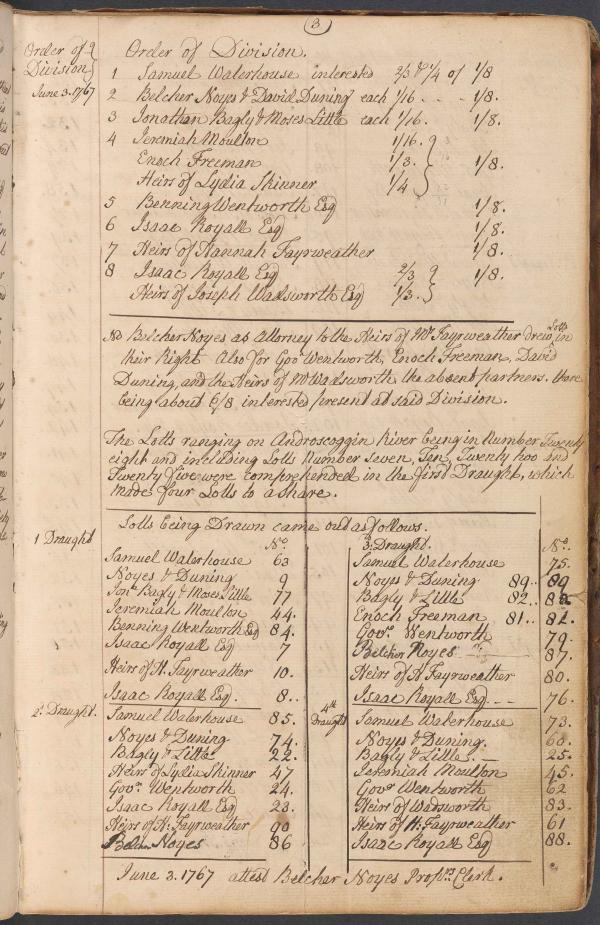 (3)
Order of
Division
June 3. 1767
Order of Division.
1 Samuel Waterhouse interested 2/3 & 1/4 of 1/8
2 Belcher Noyes & David Duning each 1/16 - - - 1/8.
3 Jonathan Bagly & Moses Little each 1/16. 1/8.
4 Jeremiah Moulton 1/16.
Enoch Freeman 1/3. 1/8.
Heirs of Lydia Skinner 1/4
5 Benning Wentworth Esq 1/8.
6 Isaac Royall Esq 1/8.
7 Heirs of Hannah Fayrweather 1/8.
8 Isaac Royall Esq 2/3 1/8.
Heirs of Joseph Wadsworth Esq 1/3.
NB Belcher Noyes as Attorney to the Heirs of Mr Fayrweather drew Lotts in
their Right Also for Gov Wentworth, Enoch Freeman, David
Duning, and the Heirs of Mr Wadsworth, the absent partners. there
being about 6/8 interested present at said Division.
The Lotts ranging on Androscoggin River being in Number Twenty
eight and including Lotts Number Seven, Ten, Twenty two and
Twenty five were comprehended in the first Draught, which
made four Lotts to a share.
Lotts being Drawn came out as follows.
1 Draught No.
Samuel Waterhouse 63
Noyes & Duning 9
Jona Bagly & Moses Little 77
Jeremiah Moulton 44.
Benning Wentworth Esq 84.
Isaac Royall Esq 7
Heirs of H. Fayrweather 10.
Isaac Royall Esq. 8..
2d Draught.
Samuel Waterhouse 85.
Noyes & Duning 74.
Bagly & Little 22.
Heirs of Lydia Skinner 47
Govr. Wentworth 24.
Isaac Royall Esq 23.
Heirs of H. Fayrweather 90
Noyes 86
3d Draught. No.
Samuel Waterhouse 75.
Noyes & Duning 89.. 89
Bagly & Little 82.. 82
Enoch Freeman 81.. 81.
Govr. Wentworth 79.
Belcher Noyes 87.
Heirs of H Fayrweather 80.
Isaac Royall Esq - - - 76.
4th
Draught
Samuel Waterhouse 73.
Noyes & Duning. 60.
Bagly & Little. - 25.
Jeremiah Moulton 45.
Govr Wentworth 62
Heirs of Wadsworth 83.
Heirs of H: Fayrweather 61
Isaac Royall Esq 88.
June 3. 1767 attest Belcher Noyes Proprs Clerk.